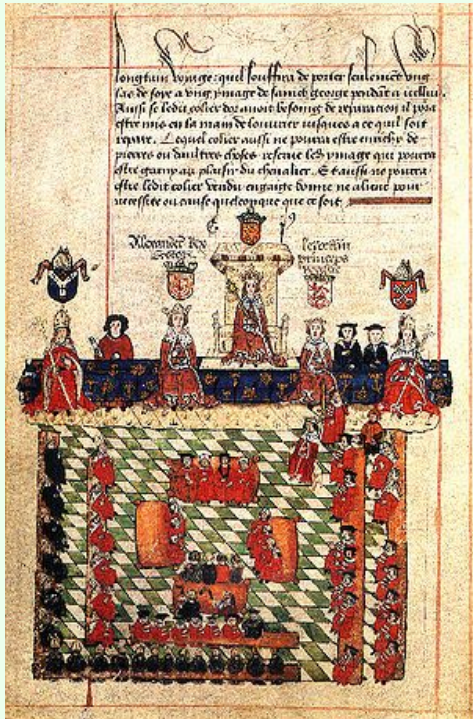 longtain voyage: quel souffira de porter seulement ung
las de soye a ung ymage de sainct george pendãt a icellui
Aussi se ledit colier dor avoit besoing de reparation il pora
estre mis en la main de louvrier jusques a ce quil soit
repare. Lequel colier aussi ne pourra estre enrichy de
pierres ou daultres choses reserve led ymage qui pourra
estre garny au plaisir du chevalier. Et aussi ne pourra
estre ledit colier vendu engaige donne ne aliene pour
necessite ou cause quelconque que ce soit
E 9
Alexander Rex
Scotor
princeps